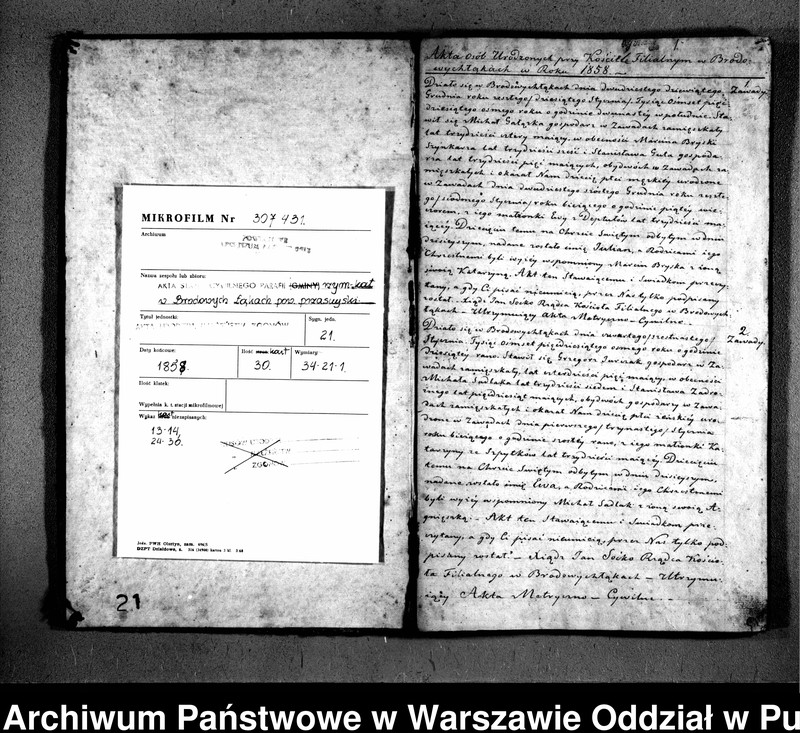 MIKROFILM Nr 307431.
Archiwum
Nazwa zespołu lub zbioru:
AKTA STANU CYWILNEGO PARAFII (GMINY) rzym-kat
w Brodowych Łąkach pow. przasnyski
Tytuł jednostki
Sygn. jedn.
21.
Daty końcowe:
1858.
Ilość kart
30.
Wymiary
34-21-1.
Ilość klatek:
Wypełnia k. t. stacji mikrofilmowej
Wykaz kart niezapisanych:
13-14,
24-30.
21
1.
Akta Osób Urodzonych przy Kościele Filialnym w Brodo-
wychłąkach w Roku 1858.
1.
Zawady
Działo się w Brodowychłąkach dnia dwudziestego dziewiątego
Grudnia roku zeszłego/dziesiątego Stycznia/Tysiąc Ośmset pięć-
dziesiątego ósmego roku o godzinie dwunastej w południe. Sta-
wił się Michał Gałązka gospodarz w Zawadach zamieszkały
lat trzydzieści cztery mający, w obecności Marcina Bryski
Szynkarza lat trzydzieści sześć i Stanisława Guta gospoda-
rza lat trzydzieści pięć mających, obydwóch w Zawadach za-
mieszkałych i okazał Nam dziecię płci męzkiéj urodzone
w Zawadach dnia dwudziestego szóstego Grudnia roku zeszłe-
go/siódmego Stycznia/roku bieżącego o godzinie piątéj wie-
czorem, z jego małżonki Ewy z Deptułów lat trzydzieści ma-
jącéj. Dziecięciu temu na Chrzcie Świętym odbytym w dniu
dzisiejszym, nadane zostało imię Julian, a Rodzicami jego
Chrzestnemi byli wyżéj wspomniony Marcin Bryska z żoną
swoią Katarzyną. Akt ten Stawaiącemu i Świadkom przeczy-
tany, a gdy Ci pisać nieumieią, przez Nas tylko podpisany
został. Xiądz Jan Sońko Rządca Kościoła Filialnego w Brodowych-
łąkach - Utrzymujący Akta Metryczno-Cywilne
2.
Zawady
Działo się w Brodowychłąkach dnia czwartego/szesnastego/
Stycznia Tysiąc Ośmset pięćdziesiątego ósmego roku o godzinie
dziesiątéj rano. Stawił się Grzegorz Jurczak gospodarz w Za-
wadach zamieszkały, lat czterdzieści pięć mający, w obecności
Michała Sadlaka lat trzydzieści siedem i Stanisława
lat pięćdziesiąt mających, obydwóch gospodarzy w Zawa-
dach zamieszkałych i okazał Nam dziecię płci żeńskiéj uro-
dzone w Zawadach dnia pierwszego/trzynastego/Stycznia
roku bieżącego o godzinie szóstéj rano, z jego małżonki Ka-
tarzyny ze Szpytków lat trzydzieści mającéj. Dziecięciu
temu na Chrzcie Świętym odbytym w dniu dzisiejszym,
nadane zostało imię Ewa, a Rodzicami jego Chrzestnemi
byli wyżéj wspomniony Michał Sadlak z żoną swoią A-
gnieszką. - Akt ten Stawaiącemu i Świadkom prze-
czytany, a gdy Ci pisać nieumieią, przez Nas tylko pod-
pisany został. - Xiądz Jan Sońko Rządca Kościo-
ła Filialnego w Brodowychłąkach - Utrzymu-
jący Akta Metryczno - Cywilne. -
Archiwum Państwowe w Warszawie Oddział w Pu